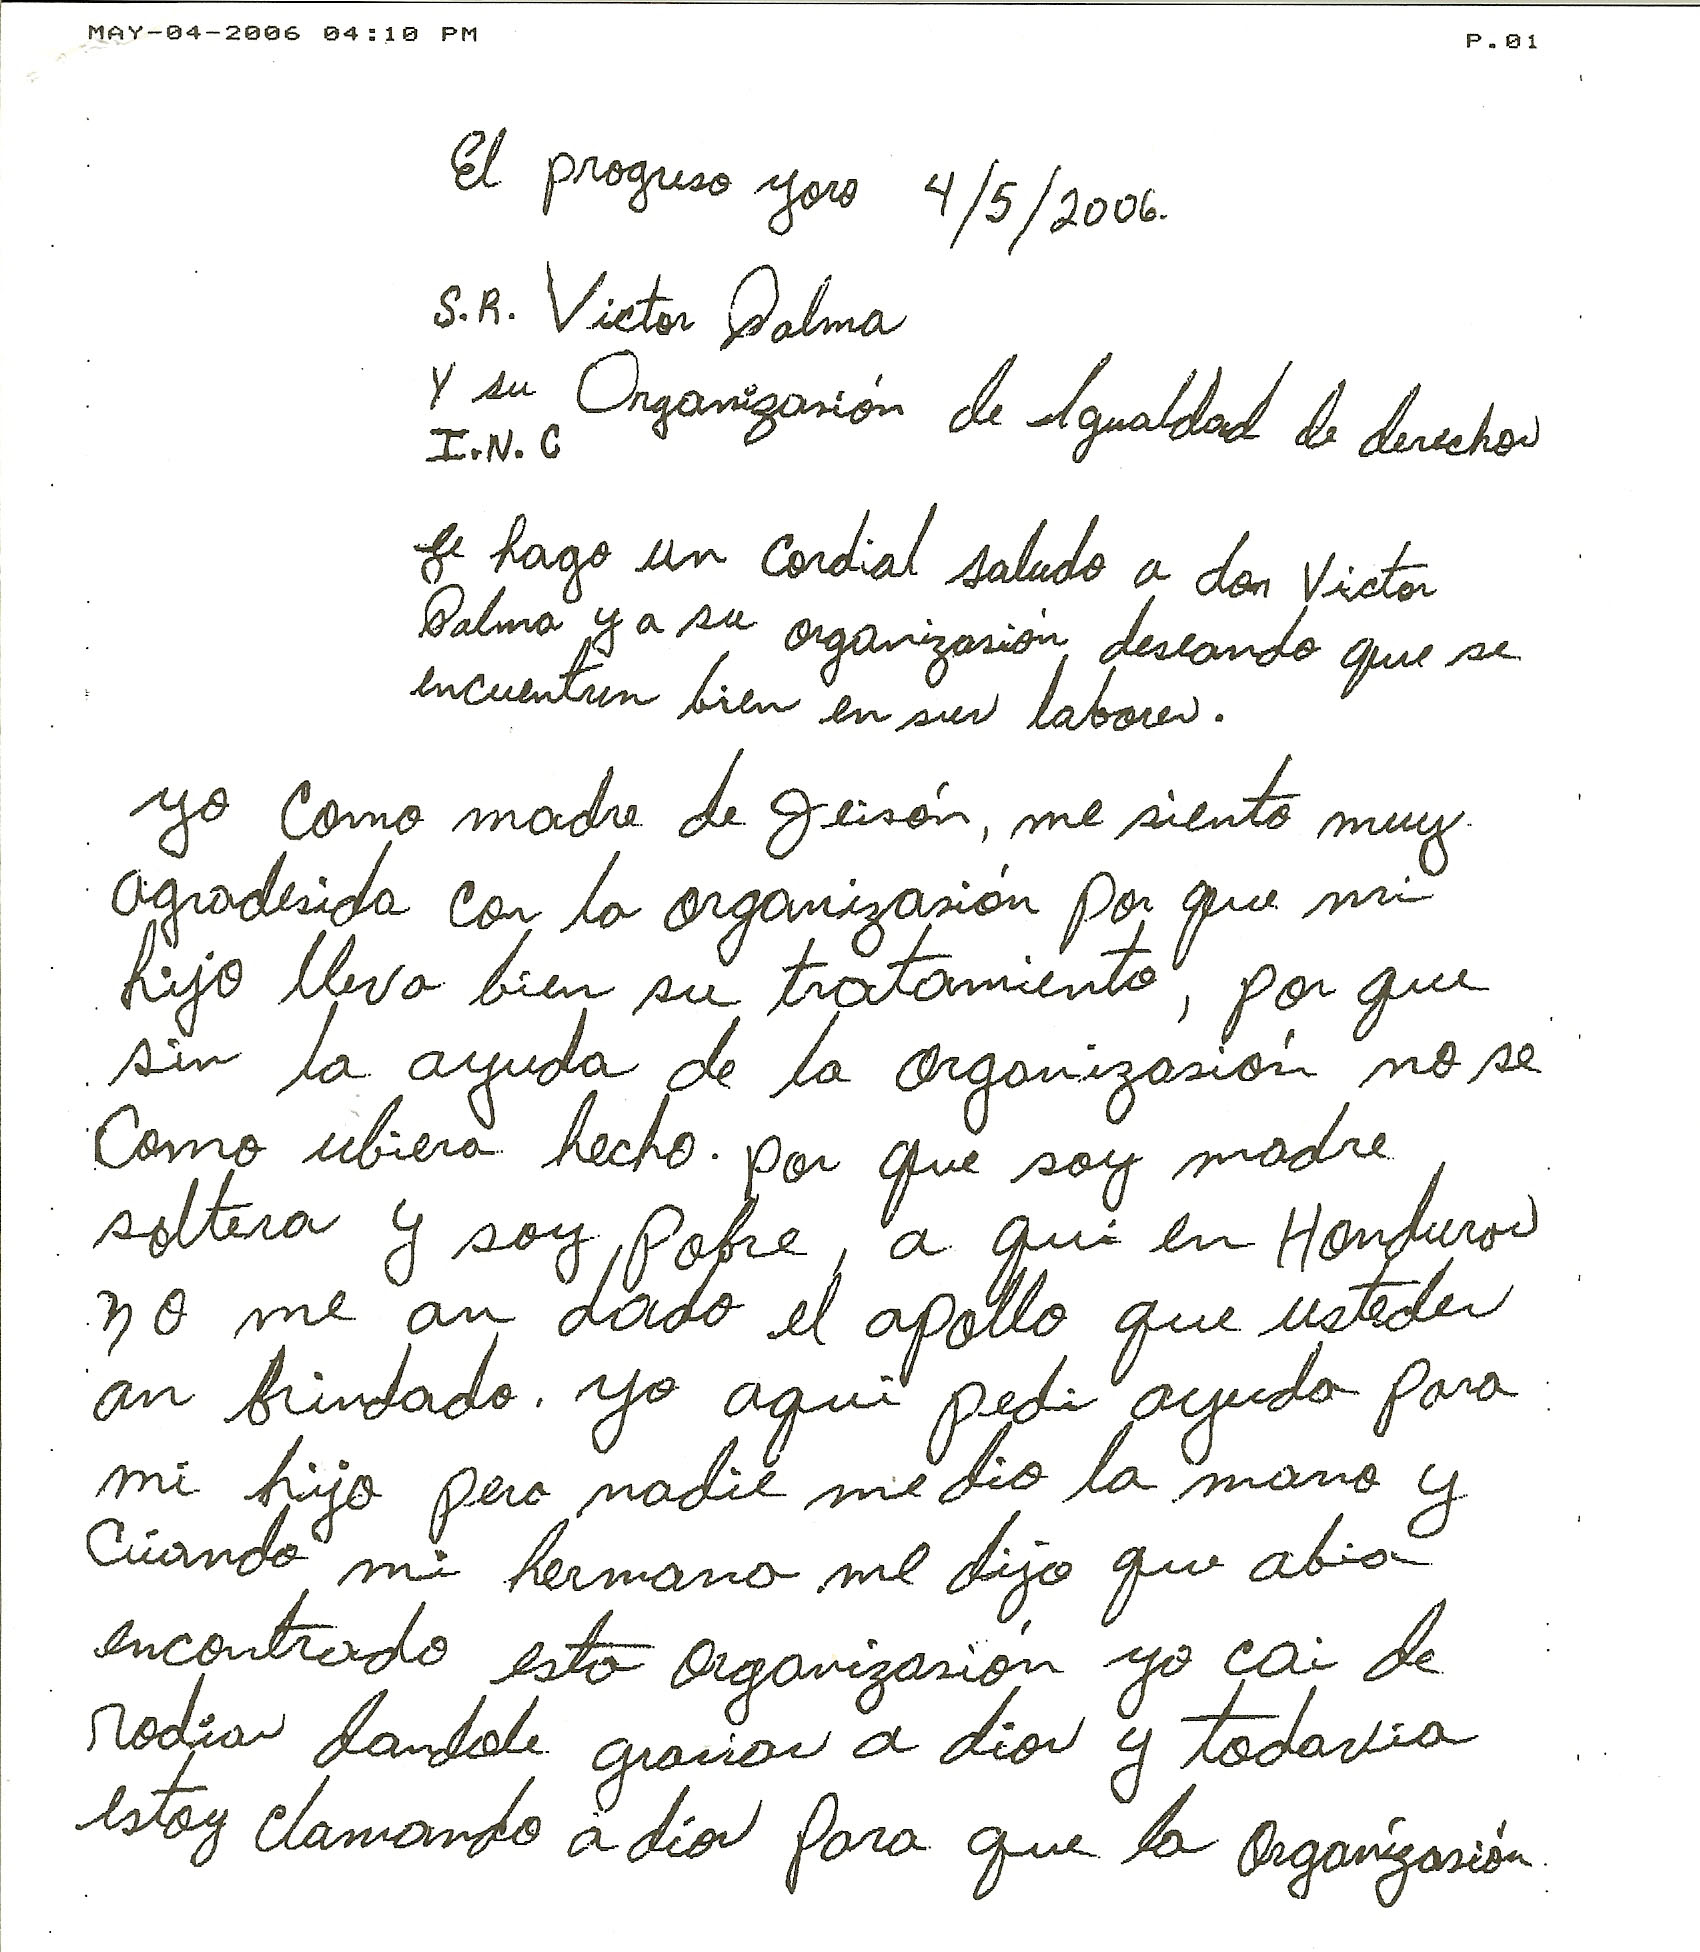 MAY-04-2006 04:10 PM P.01
El progreso yoro 4/5/2006.
S.R. Victor Palma
Y su Organizasión de Igualdad de derechos
I.N.C
Le hago un cordial saludo a don Victor
Palma y a su organizasión deseando que se
encuentren bien en sus labores.
yo como madre de Jeisón, me siento muy
agradesida con la organizasión por que mi
hijo lleva bien su tratamiento, por que
sin la ayuda de la organizasión no se
Como ubiera hecho. por que soy madre
soltera y soy pobre, a qui en Honduras
no me an dado el apollo que ustedes
an brindado. yo aqui pedi ayuda para
mi hijo pero nadie me dio la mano y
Cuando mi hermano me dijo que abia
encontrado esta organizasión yo cai de
rodias dandole grasias a dios y todavia
estoy clamando a dios para que la organizasión